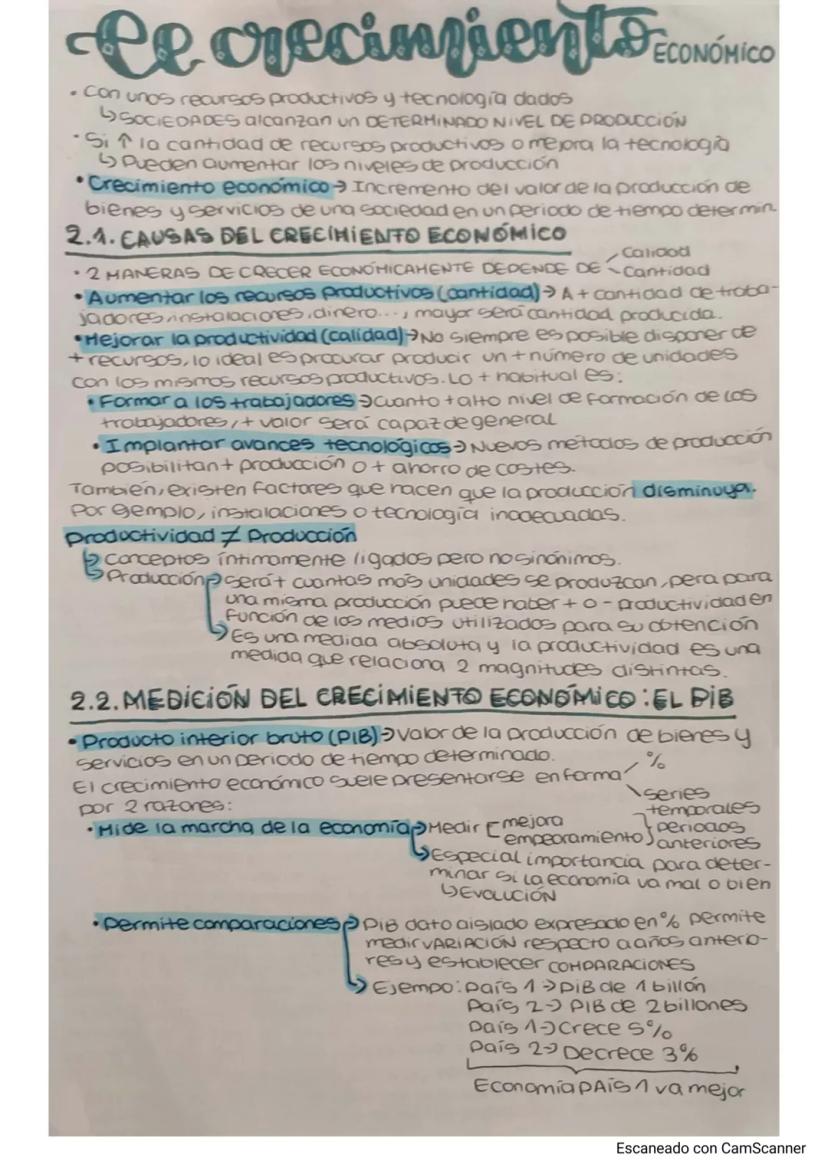 El crecimiento ECONÓMICO
• Con unos recursos productivos y tecnología dados
↳ SOCIEDADES alcanzan un DETERMINADO NIVEL DE PRODUCCIÓN
• Si ↑ la cantidad de recursos productivos o mejora la tecnología
↳ Pueden aumentar los niveles de producción
• Crecimiento económico → Incremento del valor de la producción de
bienes y servicios de una sociedad en un periodo de tiempo determin
2.1. CAUSAS DEL CRECIMIENTO ECONÓMICO
• 2 MANERAS DE CRECER ECONÓMICAMENTE DEPENDE DE
Calidad
Cantidad
• Aumentar los recursos productivos (cantidad) → A + cantidad de traba-
jadores, instalaciones, dinero..., mayor será cantidad producida.
• Mejorar la productividad (calidad) → No siempre es posible disponer de
+ recursos, lo ideal es procurar producir un + número de unidades
con los mismos recursos productivos. Lo + habitual es:
• Formar a los trabajadores → Cuanto + alto nivel de formación de los
trabajadores, + valor será capaz de general
• Implantar avances tecnológicos → Nuevos métodos de producción
posibilitan + producción o + ahorro de costes.
También, existen factores que hacen que la producción disminuya.
Por ejemplo, instalaciones o tecnología inadecuadas.
Productividad ≠ Producción
↳ Conceptos íntimamente ligados pero no sinónimos.
↳ Producción → será + cuantas más unidades se produzcan, pera para
una misma producción puede haber + o - productividad en
función de los medios utilizados para su obtención
↳ Es una medida absoluta y la productividad es una
medida que relaciona 2 magnitudes distintas.
2.2. MEDICIÓN DEL CRECIMIENTO ECONÓMICO: EL PIB
• Producto interior bruto (PIB) → Valor de la producción de bienes y
servicios en un periodo de tiempo determinado.
El crecimiento económico suele presentarse en forma
%
series
temporales
por 2 razones:
• Mide la marcha de la economía → Medir
mejora
empeoramiento
periodos
anteriores
↳ Especial importancia para deter-
minar si la economía va mal o bien
↳ EVOLUCIÓN
• Permite comparaciones → PIB dato aislado expresado en % permite
medir VARIACIÓN respecto a años anterio-
res y establecer COMPARACIONES
↳ Ejemplo: País 1 → PIB de 1 billón
País 2 → PIB de 2 billones
País 1 → Crece 5%
País 2 → Decrece 3%
Economía PAÍS 1 va mejor
Escaneado con CamScanner